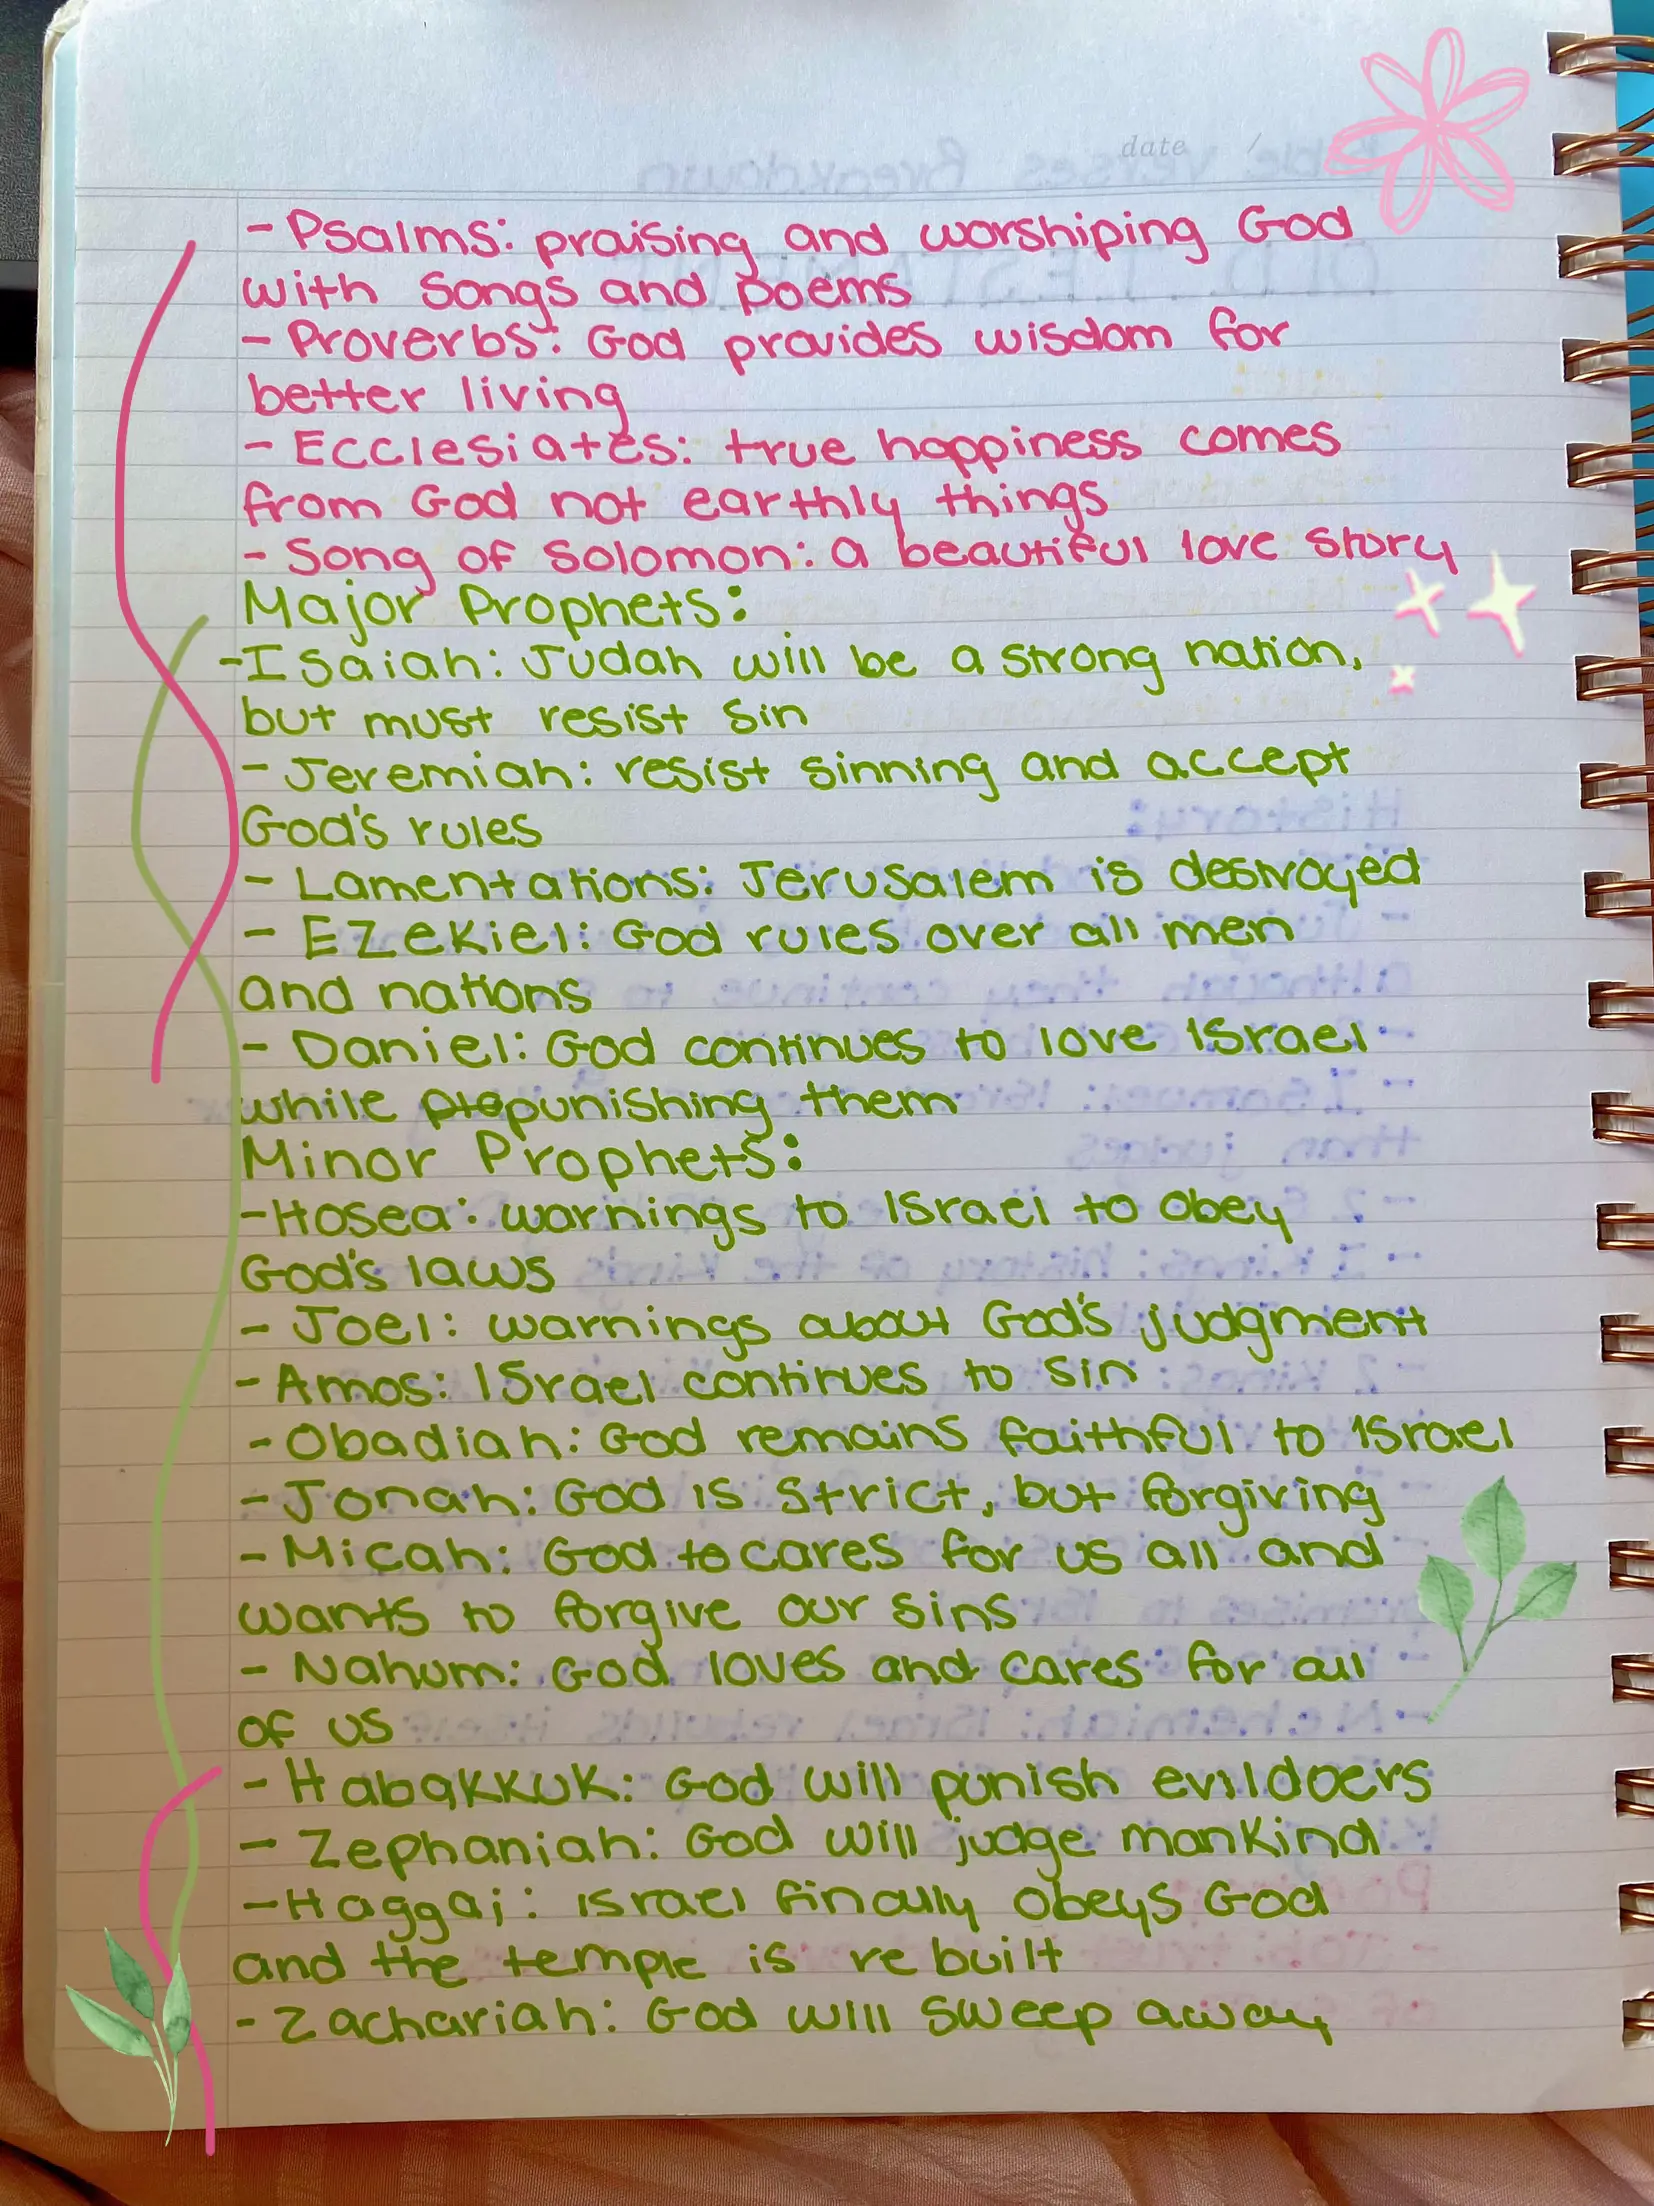 date /
- Psalms: praising and worshiping God
with songs and poems
- Proverbs: God provides wisdom for
better living
- Ecclesiates: true happiness comes
from God not earthly things
- Song of Solomon: a beautiful love story
Major Prophets:
- Isaiah: Judah will be a strong nation,
but must resist sin
- Jeremiah: resist sinning and accept
God's rules
- Lamentations: Jerusalem is destroyed
- Ezekiel: God rules over all men
and nations
- Daniel: God continues to love Israel
while punishing them
Minor Prophets:
- Hosea: warnings to Israel to obey
God's laws
- Joel: warnings about God's judgment
- Amos: Israel continues to sin
- Obadiah: God remains faithful to Israel
- Jonah: God is strict, but forgiving
- Micah: God to cares for us all and
wants to forgive our sins
- Nahum: God loves and cares for all
of us
- Habakkuk: God will punish evildoers
- Zephaniah: God will judge mankind
- Haggai: israel finally obeys God
and the temple is rebuilt
- Zachariah: God will sweep away